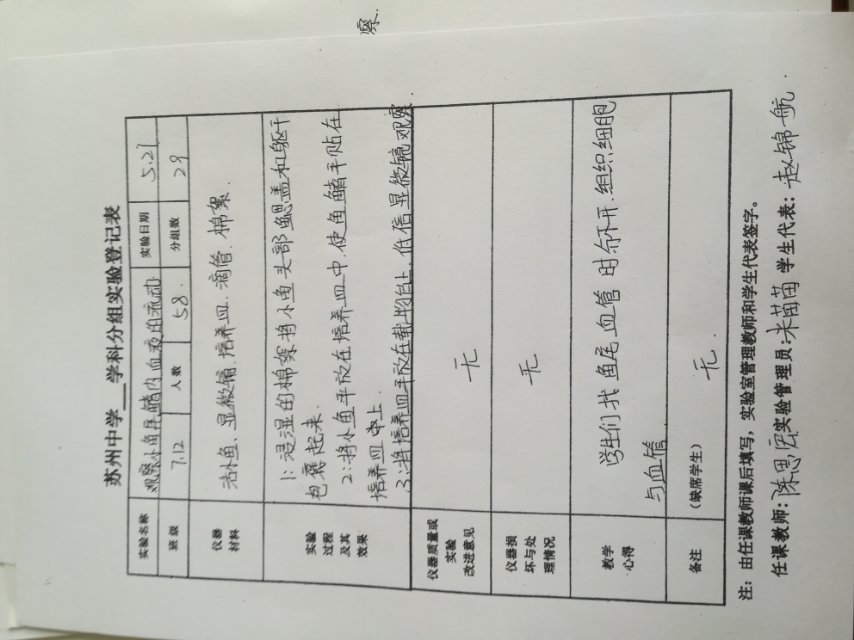 察.
苏州中学__学科分组实验登记表
实验名称 观察小鱼尾鳍内血液的流动 实验日期 5.21
班级 7.12 人数 58 分组数 29
仪器材料 活小鱼、显微镜、培养皿、滴管、棉絮.
实验过程及其效果 1:浸湿的棉絮将小鱼头部鳃盖和躯干
包裹起来.
2:将小鱼平放在培养皿中.使鱼鳍平贴在
培养皿上
3:将培养皿平放在载物台上.低倍显微镜观察
仪器质量或实验改进意见 无
仪器损坏与处理情况 无
教学心得 学生们找鱼尾血管时分不开.组织细胞
与血管
备注 (缺席学生) 无.
注:由任课教师课后填写,实验室管理教师和学生代表签字。
任课教师: 陈思 实验管理员: 苗苗 学生代表: 赵锦航.